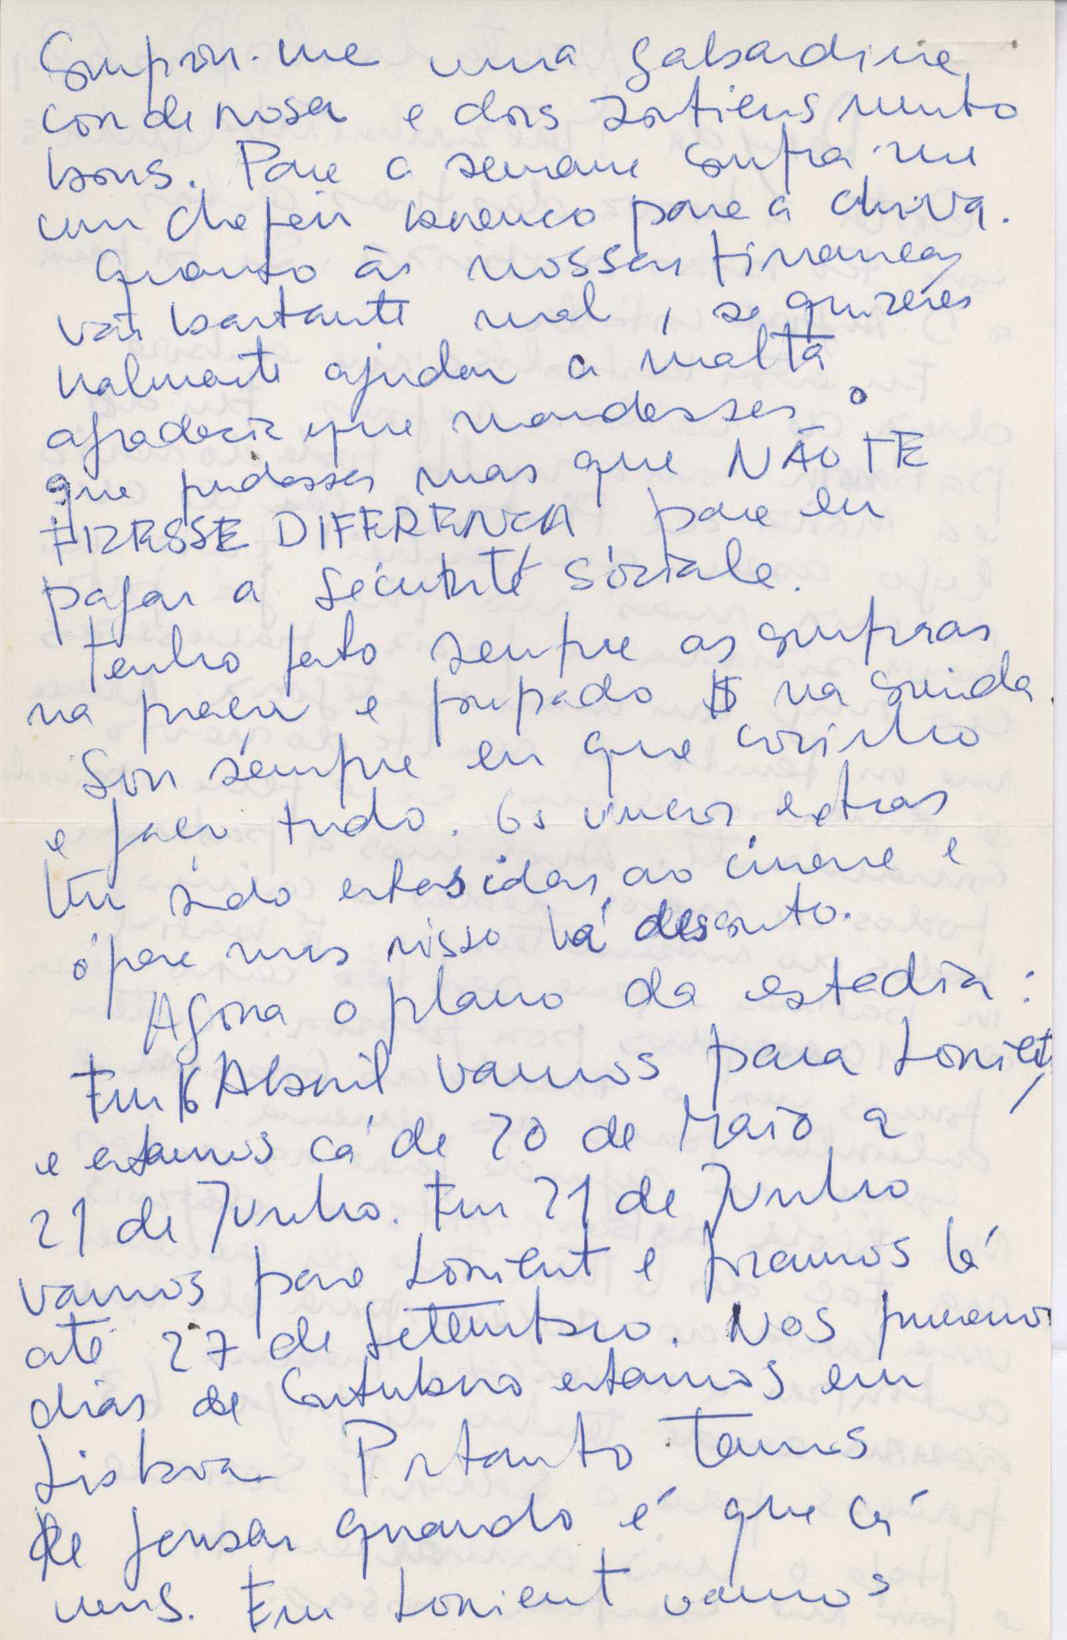 Comprou-me uma gabardine
cor de rosa e dois sortiens muito
bons. Para a semana compra-me
um chapéu branco para a chuva.
Quanto às nossas finanças
vão bastante mal, se quizeres
realmente ajudar a malta
agradecia que mandasses o
que pudesses mas que NÃO TE
FIZESSE DIFERENÇA para eu
pagar a Sécurité Sociale.
Tenho feito sempre as compras
na praça e poupado $ na comida.
Sou sempre eu que cozinho
e faço tudo. Os únicos extras
têm sido estas idas ao cinema e
ópera mas nisso há desconto.
Agora o plano da estadia:
Em 16 Abril vamos para Lorient,
e estamos cá de 20 de Maio a
21 de Junho. Em 21 de Junho
vamos para Lorient e ficamos lá
até 27 de Setembro. Nos primeiros
dias de Outubro estamos em
Lisboa. Portanto temos
de pensar quando é que cá
vens. Em Lorient vamos